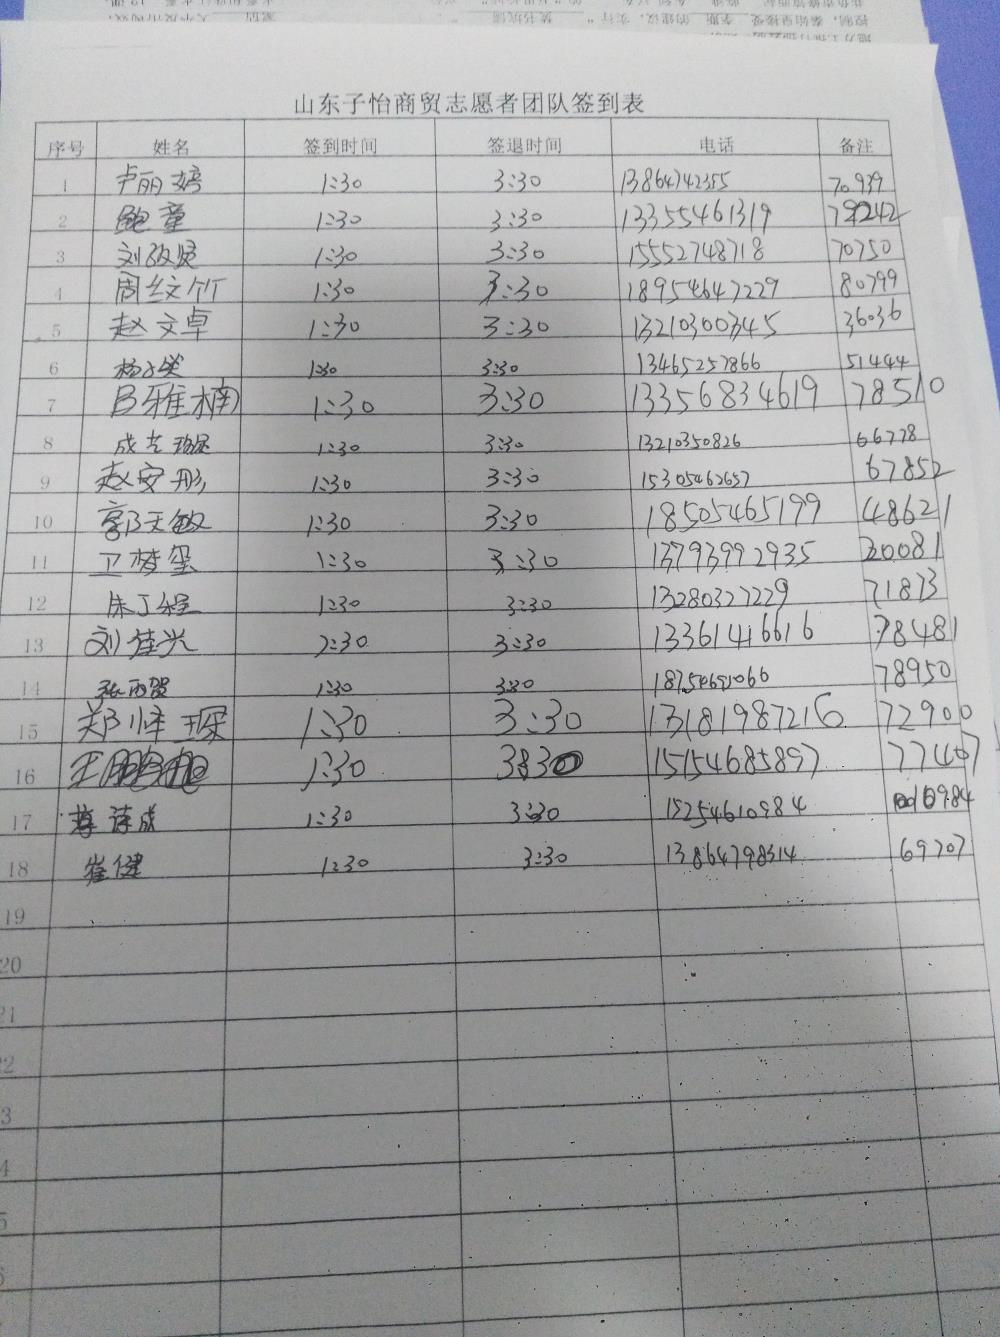 山东子怡商贸志愿者团队签到表
序号 姓名 签到时间 签退时间 电话 备注
1 卢丽婷 1:30 3:30 13864742355 70939
2 鲍童 1:30 3:30 13355461319
3 刘致贤 1:30 3:30 15552748718 70750
4 周纹竹 1:30 3:30 18954647229 80799
5 赵文卓 1:30 3:30 13210300345 36036
6 1:30 3:30 13465257866 51444
7 吕雅楠 1:30 3:30 13356834619 78510
8 1:30 3:30 13210350826 66778
9 赵安彤 1:30 3:30 15305462657 67852
10 郭天敏 1:30 3:30 18505465199 48621
11 卫梦玺 1:30 3:30 13793992935 20081
12 朱丁程 1:30 3:30 13280327229 71873
13 刘佳兴 3:30 13361416616 78481
14 张雨贺 1:30 3:30 78950
15 郑惟琛 1:30 3:30 13181987216 72900
16 1:30 15154685897 77407
17 1:30 3:30 15254610984
18 崔健 1:30 3:30 13864798314 69707
19
20
21
22
3
4
5